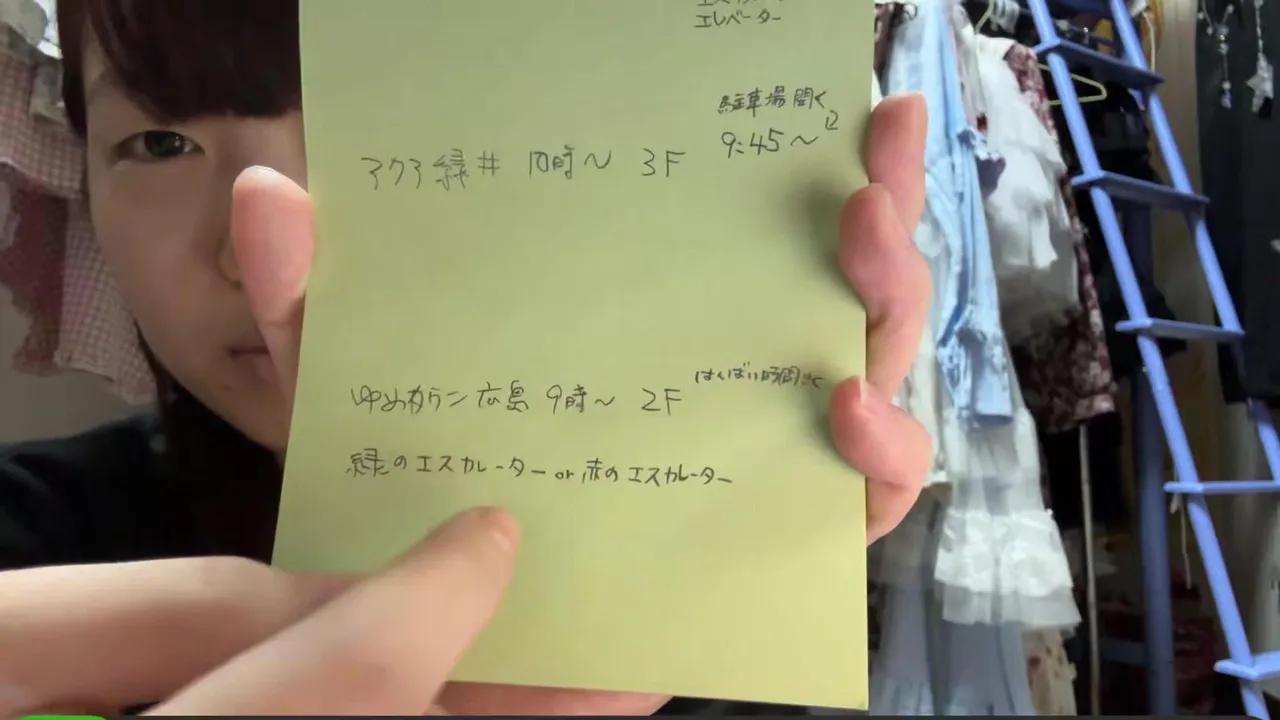 エレベーター
駐車場開く
9:45〜
アクア緑井 10時〜 3F
はんばい時間きく
ゆめタウン広島 9時〜 2F
緑のエスカレーター or 赤のエスカレーター